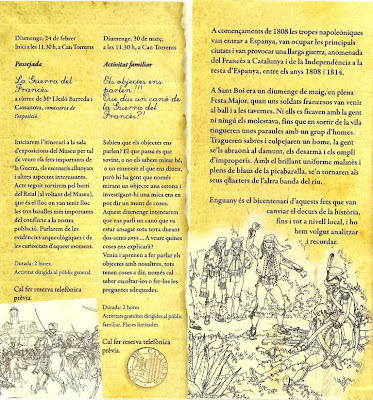 Diumenge, 24 de febrer
Inici a les 11.30 h, a Can Torrents
Passejada
La Guerra del
Francès
a càrrec de Mª Lledó Barreda i
Casanova, comissària de
l'exposició.
Iniciarem l'itinerari a la sala
d'exposicions del Museu per tal
de veure els fets importants de
la Guerra, els escenaris allunyats
i altres aspectes interessants.
Acte seguit sortirem pel barri
del Reial (al voltant del Museu),
que és el lloc on van tenir lloc
les tres batalles més importants
del conflicte a la nostra
població. Parlarem de les
evidències arqueològiques i de
les curiositats d'aquest moment.
Durada: 2 hores.
Activitat dirigida al públic general.
Cal fer reserva telefònica
prèvia.
Diumenge, 30 de març,
a les 11.30 h, a Can Torrents
Activitat familiar
Els objectes ens
parlen!!!
Que diu un canó de
la Guerra del
Francès?
Sabíeu que els objectes ens
parlen? El que passa és que
sovint, o no els sabem mirar bé,
o no entenem el que ens diuen,
però hi ha gent que només
mirant un objecte una estona i
investigant-hi una mica ens en
pot dir un munt de coses.
Aquest diumenge intentarem
que ens parli un canó que va
estar amagat sota terra durant
dos-cents anys ... A veure quines
coses ens explicarà?
Veniu i apreneu a fer parlar els
objectes amb nosaltres, tots
tenen coses a dir, només cal
saber escoltar-los o fer-los les
preguntes adequades.
Durada: 2 hores
Activitats gratuïtes dirigides al públic
familiar. Places limitades.
Cal fer reserva telefònica
prèvia.
A començaments de 1808 les tropes napoleòniques
van entrar a Espanya, van ocupar les principals
ciutats i van provocar una llarga guerra, anomenada
del Francès a Catalunya i de la Independència a la
resta d'Espanya, entre els anys 1808 i 1814.
A Sant Boi era un diumenge de maig, en plena
Festa Major, quan uns soldats francesos van venir
al ball i a les tavernes. Ni ells es ficaven amb la gent
ni ningú els molestava, fins que en sortir de la vila
tingueren unes paraules amb un grup d'homes.
Tragueren sabres i colpejaren un home, la gent
se'ls abraonà al damunt, els desarmà i els omplí
d'improperis. Amb el brillant uniforme malmès i
plens de blaus de la picabaralla, se'n tornaren als
seus quarters de l'altra banda del riu.
Enguany és el bicentenari d'aquests fets que van
canviar el decurs de la història,
fins i tot a nivell local, i ho
hem volgut analitzar
i recordar.